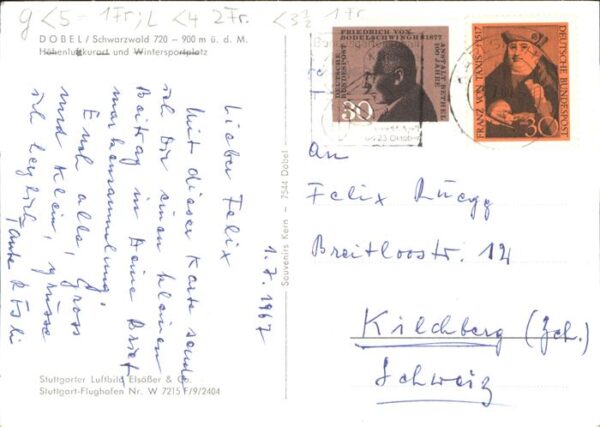 g <5 = 1 Fr; L <4 2 Fr. <3½ 1 Fr
DOBEL / Schwarzwald 720 – 900 m ü. d. M.
Höhenluftkurort und Wintersportplatz
Lieber Felix
Mit dieser Karte sende
ich Dir einen kleinen
Beitrag in Deine Brief,
markensammlung.
Euch alle, Gross
und Klein, grüsse
ich herzlich
Tante Rösli
1. 7. 1967
Stuttgarter Luftbild Elsäßer & Co.
Stuttgart-Flughafen Nr. W 7215 F/9/2404
Souvenirs Kern – 7544 Dobel
FRIEDRICH VON
BODELSCHWINGH 1877
ANSTALT BETHEL
100 JAHRE
DEUTSCHE
BUNDESPOST
30
FRANZ VON TAXIS †1517
DEUTSCHE BUNDESPOST
30
An
Felix Rüegg
Breitloostr. 12
Kilchberg (Zch.)
Schweiz